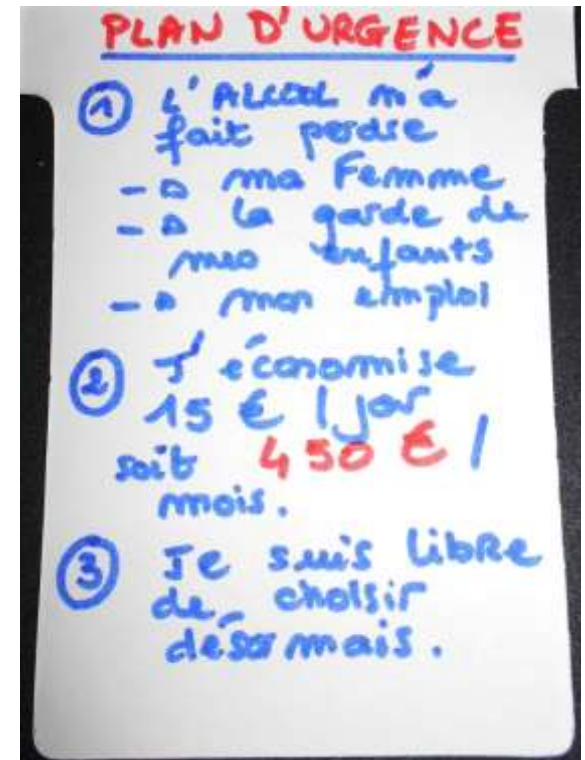 PLAN D'URGENCE
① L'ALCOOL m'a
fait perdre
-▷ ma Femme
-▷ la garde de
mes enfants
-▷ mon emploi
② J'économise
15 € / jor
soit 450 € /
mois.
③ Je suis libRe
de choisir
désormais.